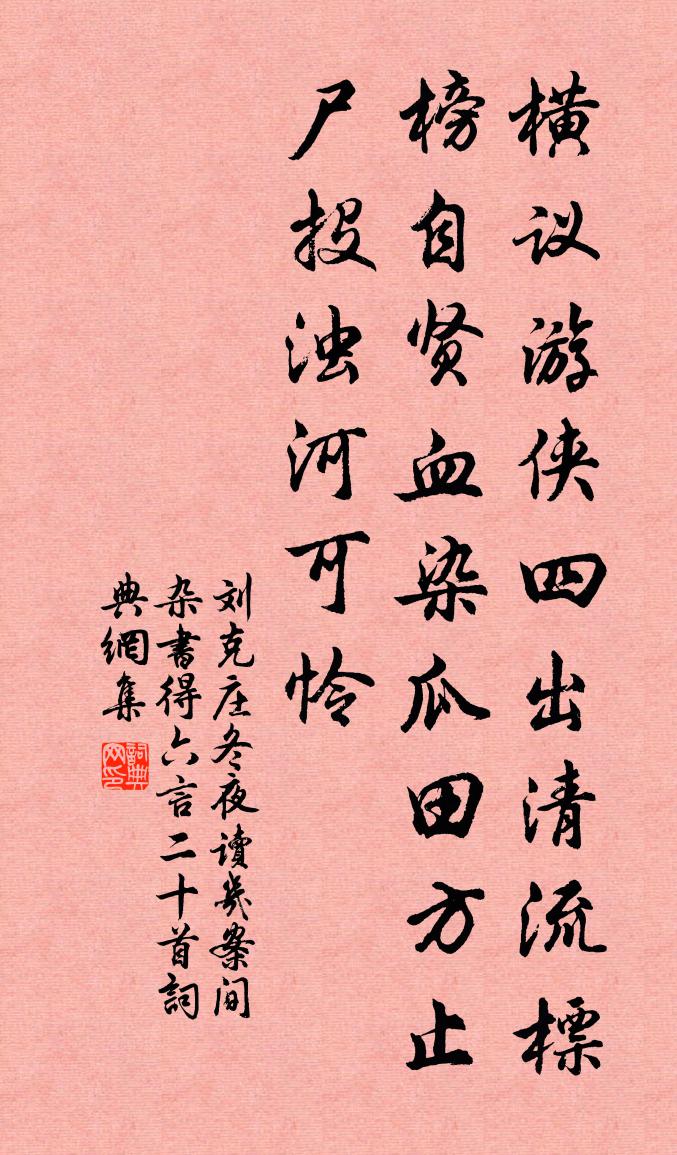 横议游侠四出清流標
榜自贤血染瓜田方止
尸投浊河可怜
刘克庄冬夜讀几案间
杂書得六言二十首詞
典網集
詞典网印